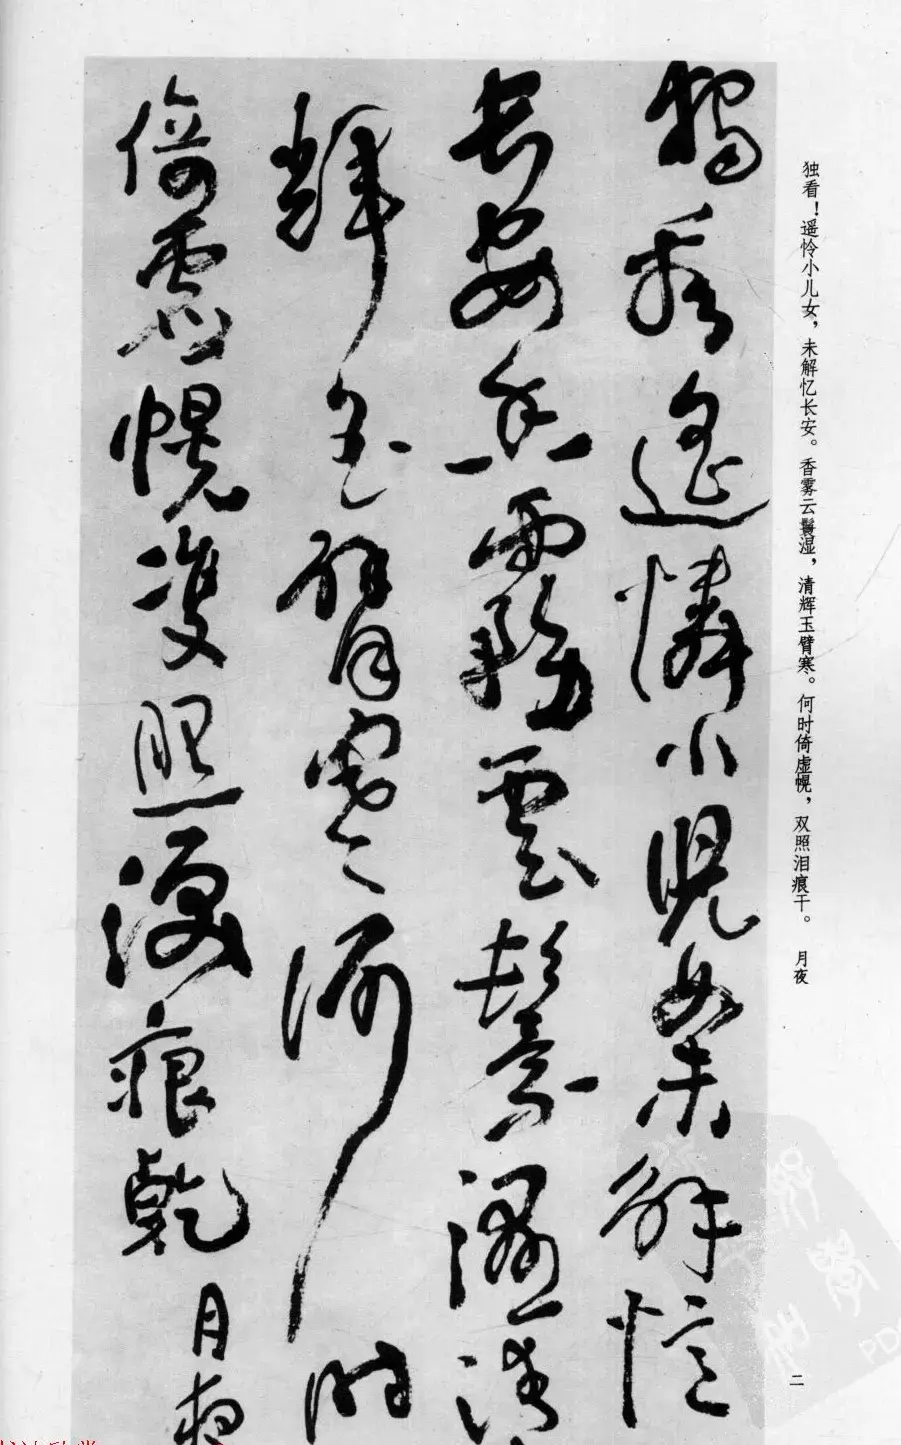 独看！遥怜小儿女，未解忆长安。香雾云鬟湿，清辉玉臂寒。何时倚虚幌，双照泪痕干。 月夜
獨看遥憐小兒女未解憶
長安香霧雲鬟濕清
輝玉臂寒何時
倚虚幌雙照淚痕乾
月夜
二